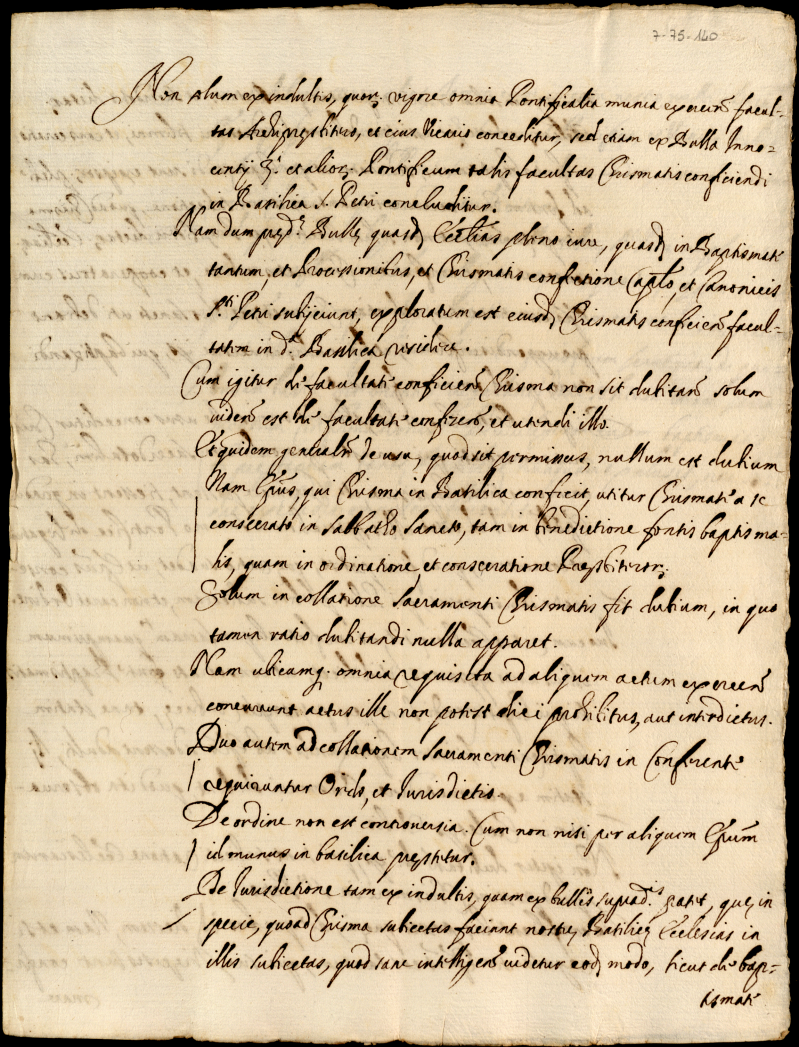 7-75-140
Non solum ex indultis, quor; vigore omnia Pontificalia munia exercen̄ facul-
tas Archipresbitero, et eius Vicario conceditur, sed etiam ex Bulla Inno-
centij 3.i et alior; Pontificum talis facultas Chrismatis conficiendi
in Basilica S. Petri concluditur.
Nam dum pred.ę Bullę quasd; Ecclias pleno iure, quasd; in Baptismate
tantum, et Processionibus, et Chrismatis confectione Caplo, et Canonicis
S.ti Petri subijciunt, exploratum est eiusd; Chrismatis conficien̄ facul-
tatem in d.a Basilica residere.
Cum igitur de facultate conficien̄ Chrisma non sit dubitan̄ solum
viden̄ est de facultate conferen̄, et utendi illo.
Et quidem generalr̄ de usu, quod sit permissus, nullum est dubium
Nam Ep̄us, qui Chrisma in Basilica conficit, utitur Chrismate a se
consecrato in Sabbatho Sancto, tam in benedictione fontis baptisma-
lis, quam in ordinatione, et consecratione Presbiteror;
Solum in collatione Sacramenti Chrismatis fit dubium, in quo
tamen ratio dubitandi nulla apparet.
Nam ubicumq; omnia requisita ad aliquem actum exercen̄
concurrunt actus ille non potest dici prohibitus, aut interdictus.
Duo autem ad collationem Sacramenti Chrismatis in Conferente
requiruntur Ordo, et Iurisdictio.
De ordine non est controversia. Cum non nisi per aliquem Ep̄um
id munus in basilica prestetur.
De Iurisdictione tam ex indultis, quam ex bullis suprad.is patet, quę in
specie, quoad Chrisma subiectas faciunt nostrę Basilicę Ecclesias in
illis subiectas, quod sane intelligen̄ videtur eod; modo, sicut de bap-
tismate